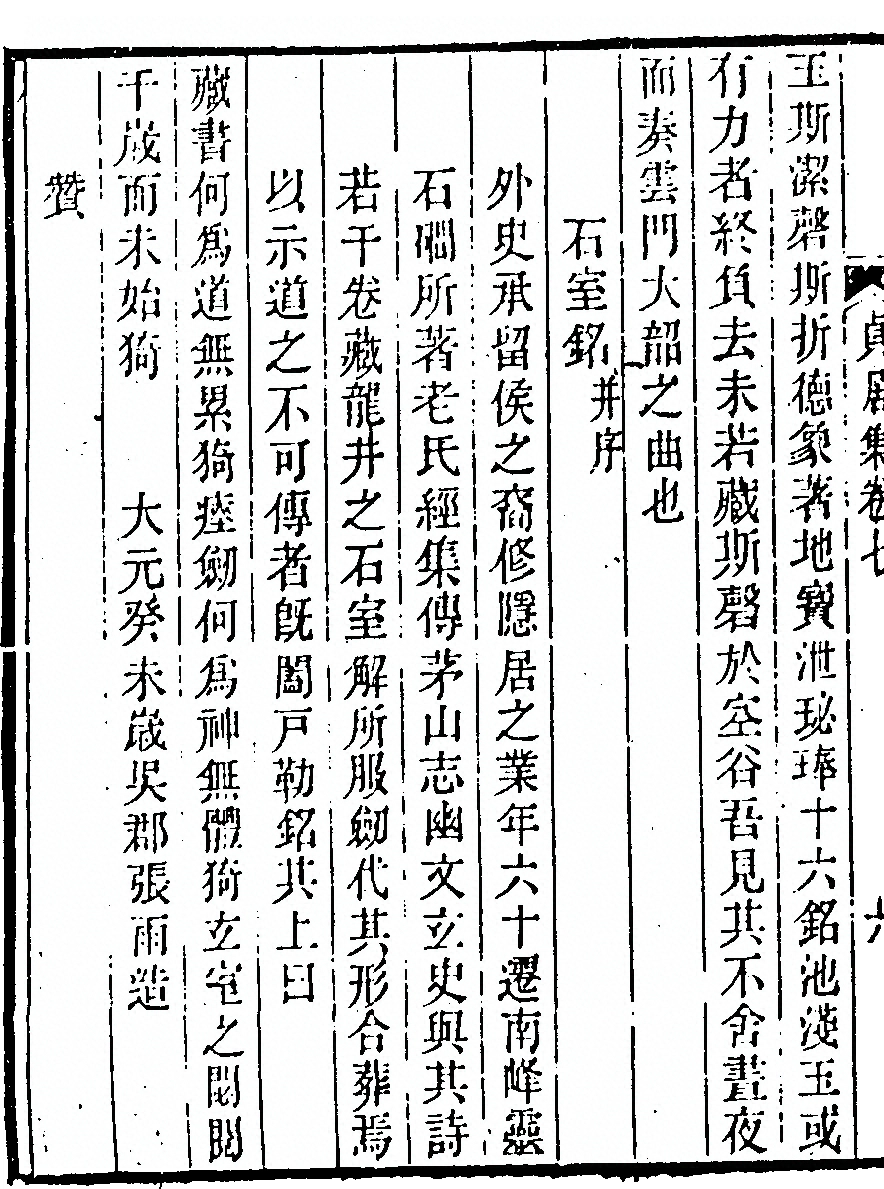 貞居集卷七 六
玉斯潔磬斯折德象著地寶泄珌琫十六銘池淺玉或
有力者終負去未若藏斯磬於空谷吾見其不舍晝夜
而奏雲門大韶之曲也
石室銘并序
外史承留侯之裔修隱居之業年六十遷南峰靈
石㵎所著老氏經集傳茅山志幽文玄史與其詩
若干卷藏龍井之石室解所服劒代其形合葬焉
以示道之不可傳者旣闔戸勒銘其上曰
藏書何爲道無累猗瘞劒何爲神無體猗玄室之閟閟
千歲而未始猗 大元癸未歲吳郡張雨造
贊